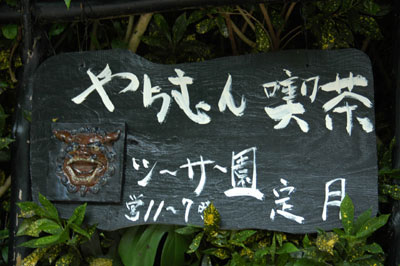 やちむん 喫茶
シーサー園
営11〜7時 定 月